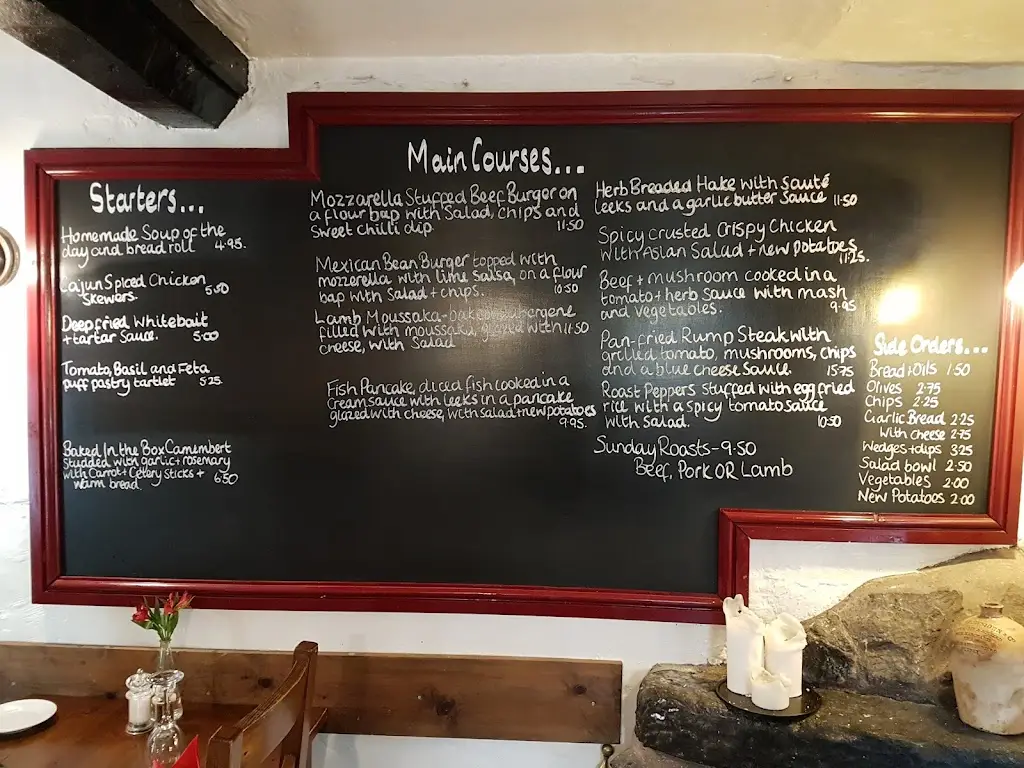 Starters...
Homemade Soup of the
day and bread roll 4.95.
Cajun Spiced Chicken
Skewers. 5.50
Deep fried Whitebait
+ tartar Sauce. 5.00
Tomato, Basil and Feta
puff pastry tartlet 5.25.
Baked In the Box Camembert
Studded with garlic + rosemary
with Carrot + Celery Sticks +
warm bread 6.50
Main Courses...
Mozzarella Stuffed Beef Burger on
a flour bap with Salad, chips and
Sweet chilli dip. 11.50
Mexican Bean Burger topped with
mozzerella with lime salsa, on a flour
bap with Salad + chips. 10.50
Lamb Moussaka - baked aubergene
filled with moussaka, glazed with 11.50
cheese, with Salad
Fish Pancake, diced fish cooked in a
cream sauce with leeks in a pancake
glazed with cheese, with salad + new potatoes
9.95.
Herb Breaded Hake with Sauté
leeks and a garlic butter sauce 11.50
Spicy crusted Crispy Chicken
with Asian Salad + new potatoes.
11.25.
Beef + mushroom cooked in a
tomato + herb Sauce with mash
and vegetables. 9.95
Pan-fried Rump Steak with
grilled tomato, mushrooms, chips
and a blue cheese sauce. 15.75
Roast Peppers stuffed with egg fried
rice with a spicy tomato sauce
with Salad. 10.50
Sunday Roasts - 9.50
Beef, Pork OR Lamb
Side Orders...
Bread + Oils 1.50
Olives 2.75
Chips 2.25
Garlic Bread 2.25
With cheese 2.75
Wedges + dips 3.25
Salad bowl 2.50
Vegetables 2.00
New Potatoes 2.00